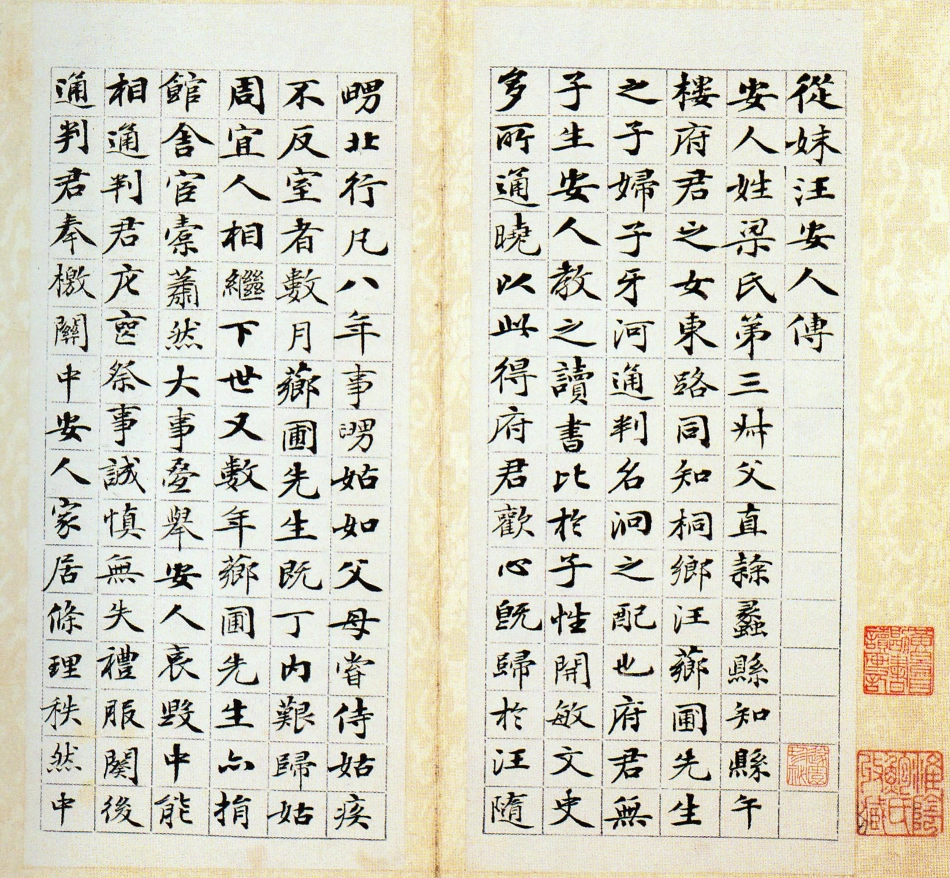 從妹汪安人傳
安人姓梁氏第三叔父直隸蠡縣知縣午
樓府君之女東路同知桐鄉汪薌圃先生
之子婦子牙河通判名泂之配也府君無
子生安人教之讀書比於子性開敏文史
多所通曉以此得府君歡心既歸於汪隨
舅北行凡八年事舅姑如父母甞侍姑疾
不反室者數月薌圃先生既丁內艱歸姑
周宜人相繼下世又數年薌圃先生亦捐
館舍宦橐蕭然大事疊舉安人哀毀中能
相通判君庀窀祭事誠慎無失禮服闋後
通判君奉檄關中安人家居條理秩然中